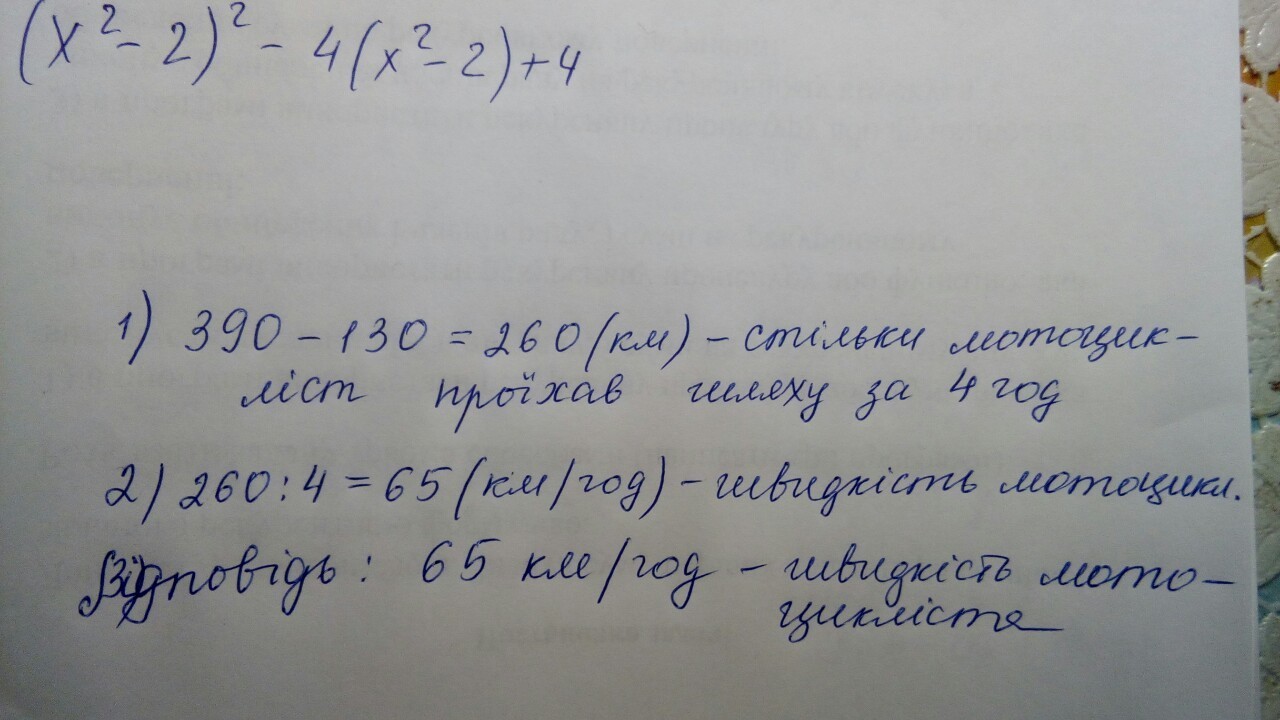 (x² - 2)² - 4(x² - 2) + 4
1) 390 - 130 = 260 (км) - стільки мотоцик-
ліст проїхав шляху за 4 год
2) 260 : 4 = 65 (км/год) - швидкість мотоцикл.
Відповідь: 65 км/год - швидкість мото-
цикліста